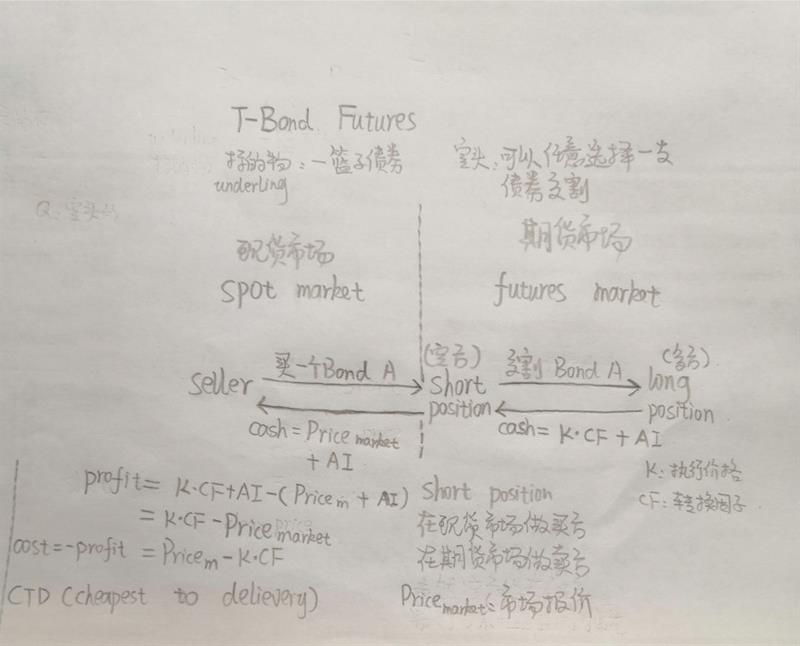 T-Bond Futures
标的物：一篮子债券
underling
空头：可以任意选择一支
债券交割
Q：空头的
现货市场
spot market
期货市场
futures market
seller
买一个Bond A
(空方)
short
position
交割 Bond A
(多方)
long
position
cash=Price market
+ AI
cash= K·CF + AI
K：执行价格
CF：转换因子
profit= K·CF+AI-(Price m + AI)
= K·CF-Price market
cost=-profit = Price m-K·CF
CTD (cheapest to delievery)
short position
在现货市场做买方
在期货市场做卖方
Price market：市场报价